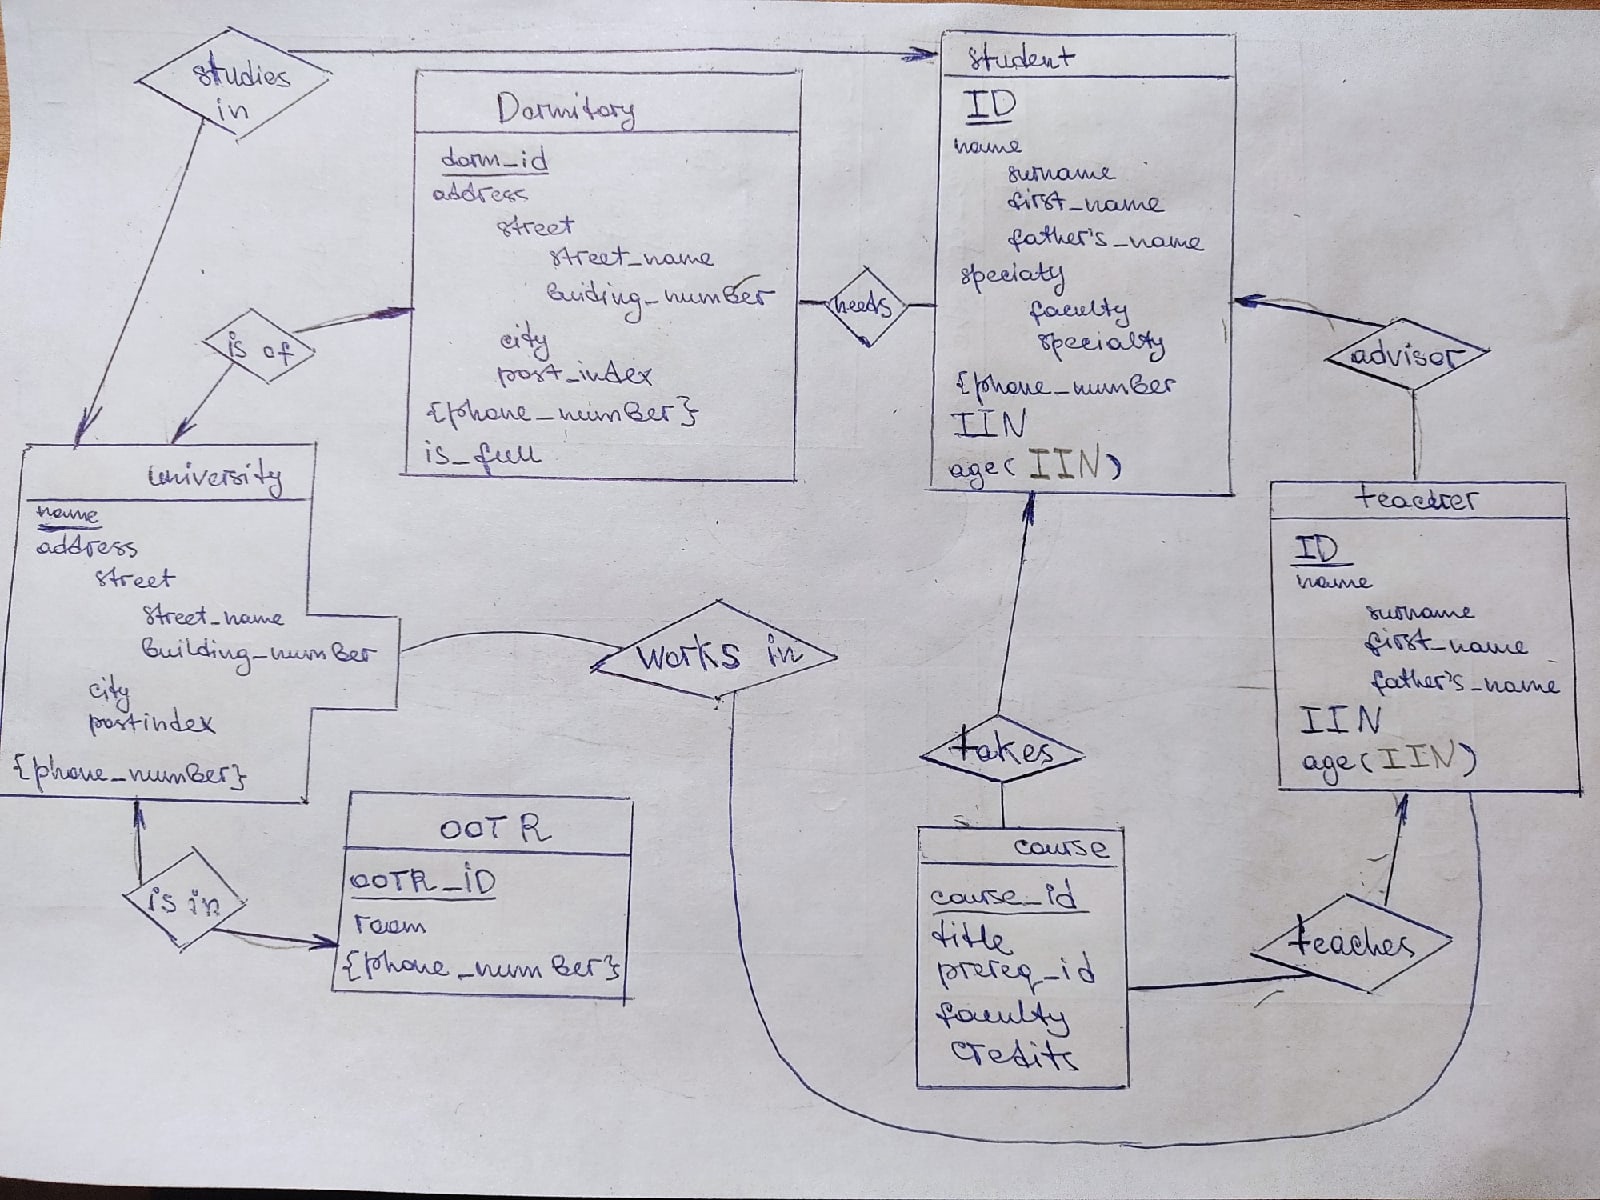 studies
in
Dormitory
dorm_id
address
street
street_name
buiding_number
city
post_index
{phone_number}
is_full
student
ID
name
surname
first_name
father's_name
speciaty
faculty
specialty
{phone_number
IIN
age(IIN)
needs
is of
advisor
university
name
address
street
street_name
building_number
city
postindex
{phone_number}
works in
teacher
ID
name
surname
first_name
father's_name
IIN
age(IIN)
takes
is in
OOTR
OOTR_iD
room
{phone_number}
course
course_id
title
prereq_id
faculty
credits
teaches